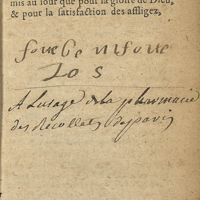 mis au jour que pour la gloire de Dieu,
& pour la satisfaction des affligez,
A Lusage de la pharmacie
des Recollets de paris